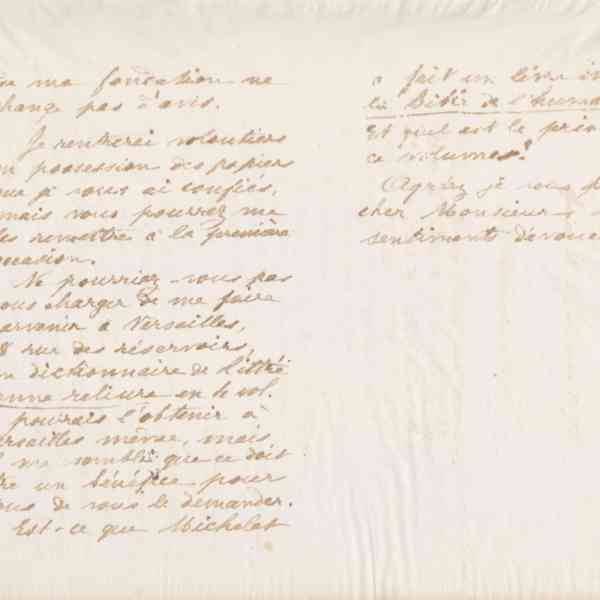 ma fondation ne
change pas d'avis.
Je rentrerai volontiers
en possession des papiers
que je vous ai confiés,
mais vous pourrez me
les remettre à la première
occasion.
Ne pourriez-vous pas
vous charger de me faire
parvenir à Versailles,
8 rue des réservoirs,
un dictionnaire de Littré
bonne reliure en le vol.
pourrais l'obtenir à
Versailles même, mais,
il me semble que ce doit
être un bénéfice pour
vous de vous le demander.
Est-ce que Michelet
a fait un livre in
la Bible de l'huma
Et quel est le prix
ce volumes?
Agréez je vous p
cher Monsieur
sentiments dévoué